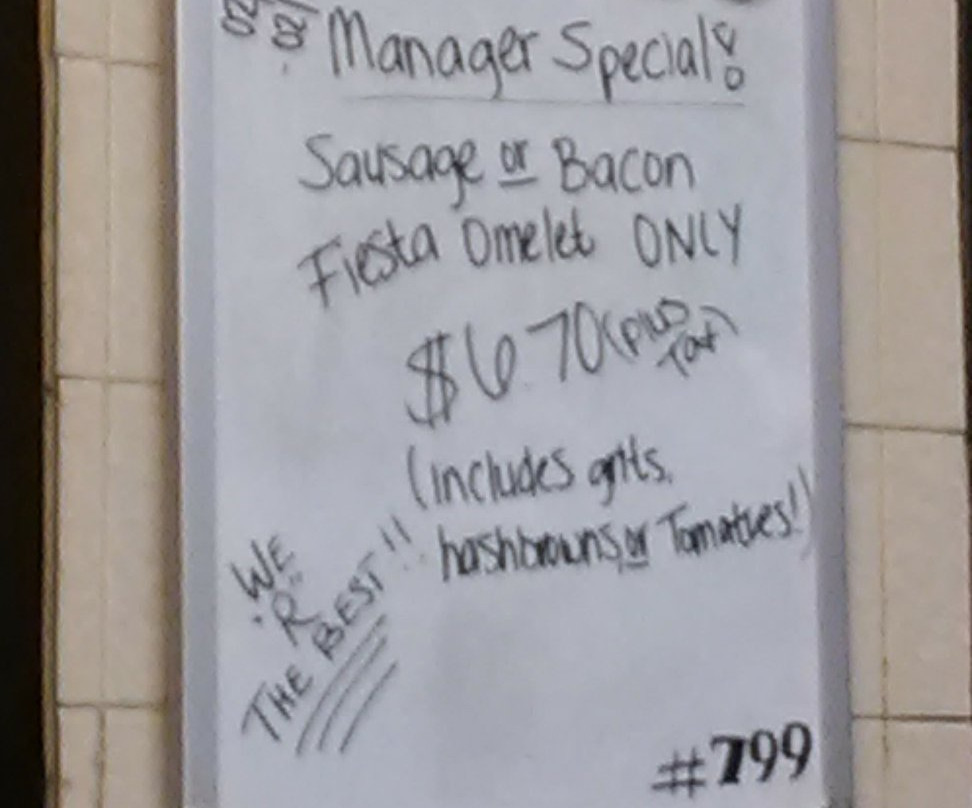 Manager Special!
Sausage or Bacon
Fiesta Omelet ONLY
$6.70 (plus
Tax)
(includes grits,
hashbrowns, or Tomatoes!)
WE
"R"
THE BEST!!
#799